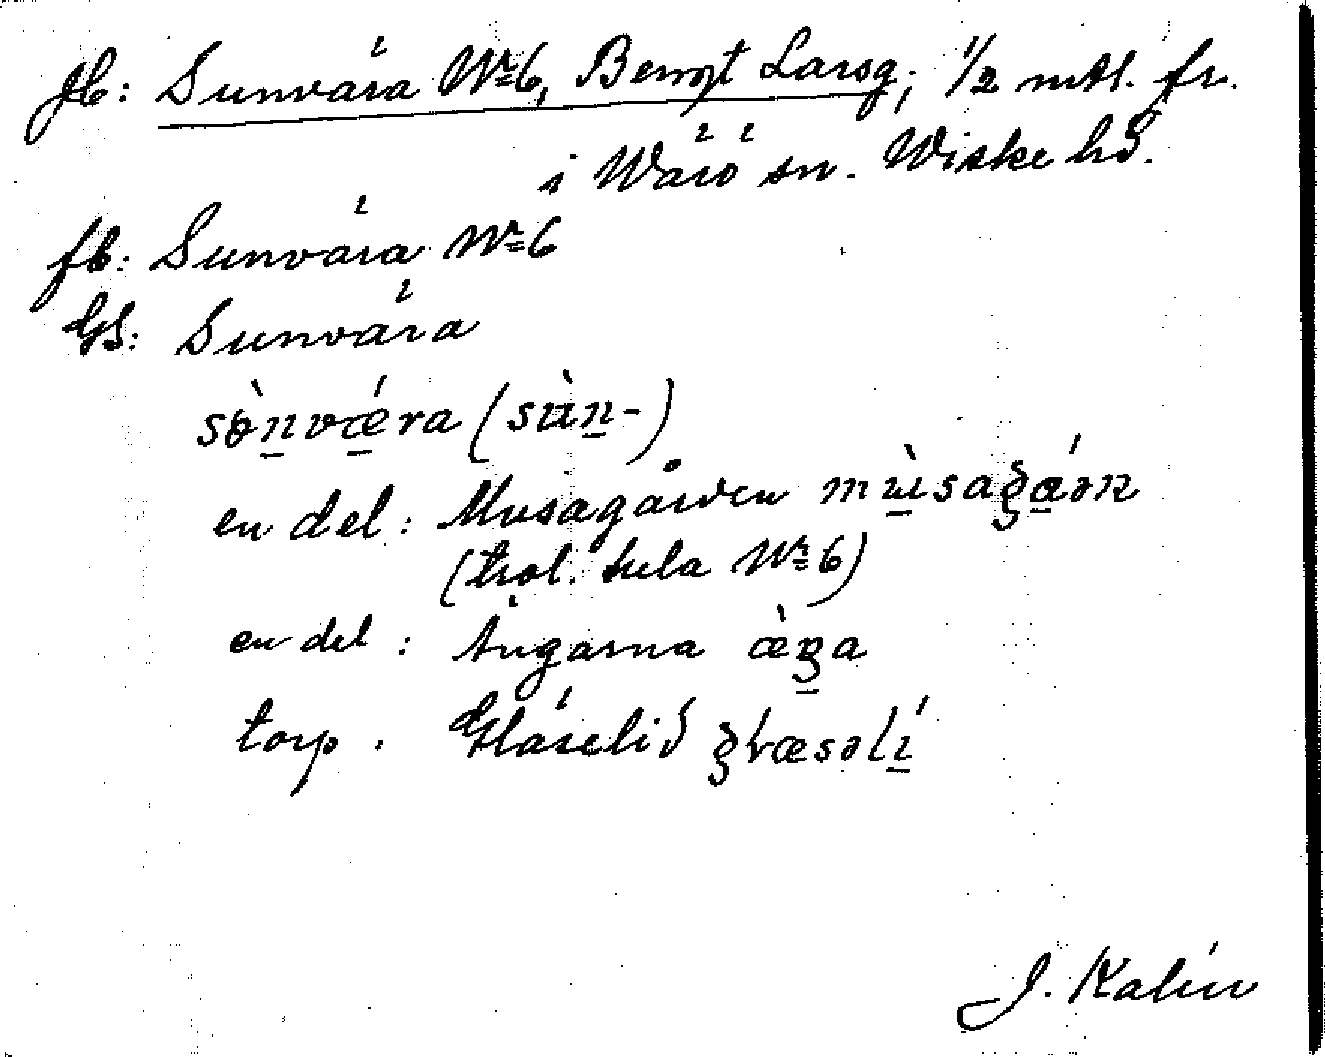 Jb: Sunvära № 6, Bengt Larsg; 1/2 mtl. fr.
i Wärö sn. Wiske hd.
fb: Sunvära № 6
GS: Sunvära
sɵ̀n̲vǽ̲ra (sùn̲-)
en del: Musagården mù̲sagá̲ən
(trol. hela № 6)
en del: Ängarna æ̀ŋa
torp. Gläselid glæsəlí̲
J. Kalén